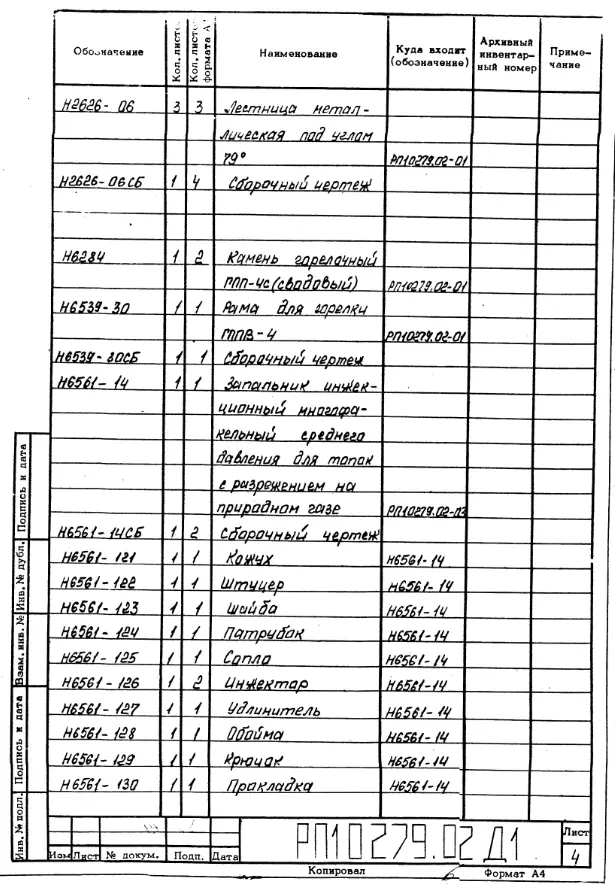 Обозначение Кол. листов Кол. листов формата А4 Наименование Куда входит (обозначение) Архивный инвентар- ный номер Приме- чание
Н2626-06 3 3 Лестница метал-
лическая под углом
79° РП10279.02-01
Н2626-06СБ 1 4 Сборочный чертеж
Н6284 1 2 Камень горелочный
ГПП-4с (сводовый) РП10279.02-01
Н6539-30 1 1 Рама для горелки
ГППВ-4 РП10279.02-01
Н6539-30СБ 1 1 Сборочный чертеж
Н6561-14 1 1 Запальник инжек-
ционный многофа-
кельный среднего
давления для топок
с разрежением на
природном газе РП10279.02-03
Н6561-14СБ 1 2 Сборочный чертеж
Н6561-121 1 1 Кожух Н6561-14
Н6561-122 1 1 Штуцер Н6561-14
Н6561-123 1 1 Шайба Н6561-14
Н6561-124 1 1 Патрубок Н6561-14
Н6561-125 1 1 Сопло Н6561-14
Н6561-126 1 2 Инжектор Н6561-14
Н6561-127 1 1 Удлинитель Н6561-14
Н6561-128 1 1 Обойма Н6561-14
Н6561-129 1 1 Крючок Н6561-14
Н6561-130 1 1 Прокладка Н6561-14
Инв. № подл. Подпись и дата Взам. инв. № Инв. № дубл. Подпись и дата
Изм Лист № докум. Подп. Дата
РП10279.02 Д1
Лист
4
Копировал Формат А4